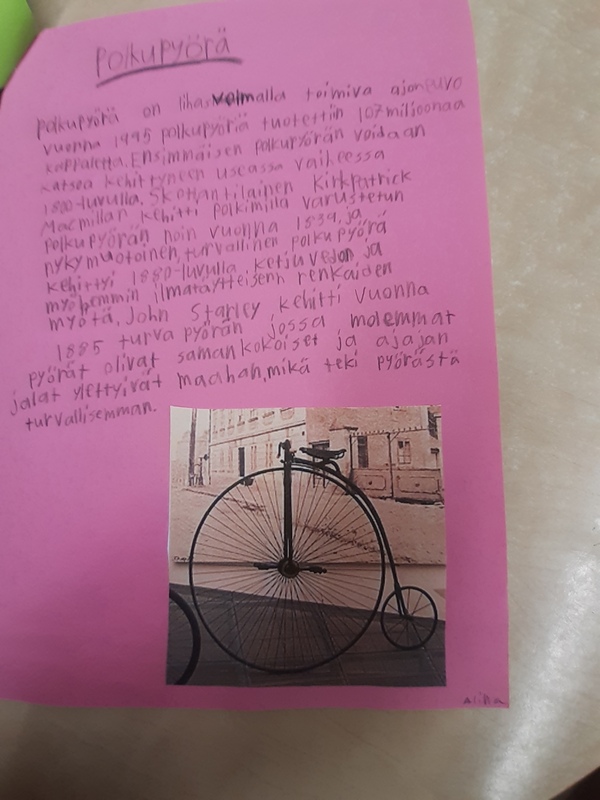 Polkupyörä
polkupyörä on lihasvoimalla toimiva ajoneuvo
vuonna 1995 polkupyöriä tuotettiin 107 miljoonaa
kappaletta. Ensimmäisen polkupyörän voidaan
katsoa kehittyneen useassa vaiheessa
1800-luvulla. Skotlantilainen Kirkpatrick
Macmillan kehitti polkimilla varustetun
polkupyörän noin vuonna 1839, ja
nykymuotoinen, turvallinen polkupyörä
kehittyi 1880-luvulla ketjuvedon ja
myöhemmin ilmatäytteisenn renkaiden
myötä. John Starley kehitti vuonna
1885 turvapyörän jossa molemmat
pyörät olivat samankokoiset ja ajajan
jalat ylettyivät maahan, mikä teki pyörästä
turvallisemman.